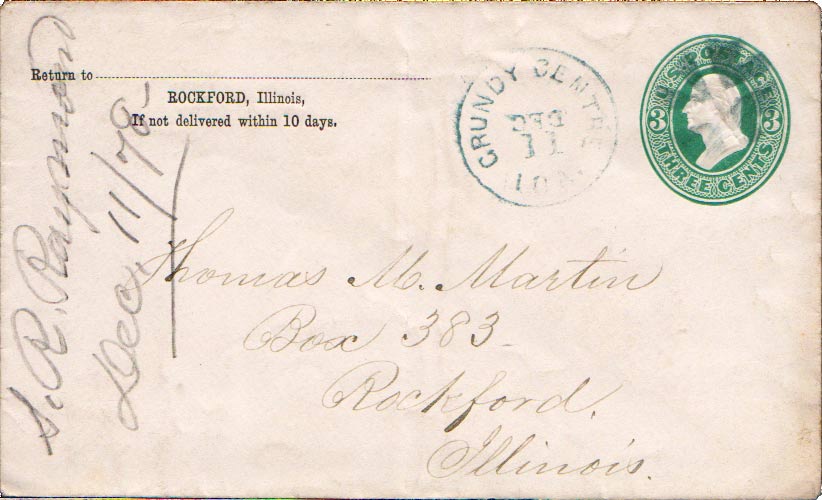 Return to
ROCKFORD, Illinois,
If not delivered within 10 days.
GRUNDY CENTRE
DEC
11
IOWA
U.S. POSTAGE
3 3
THREE CENTS
S. R. Raymond
Dec. 11/78
Thomas M. Martin
Box 383
Rockford,
Illinois.